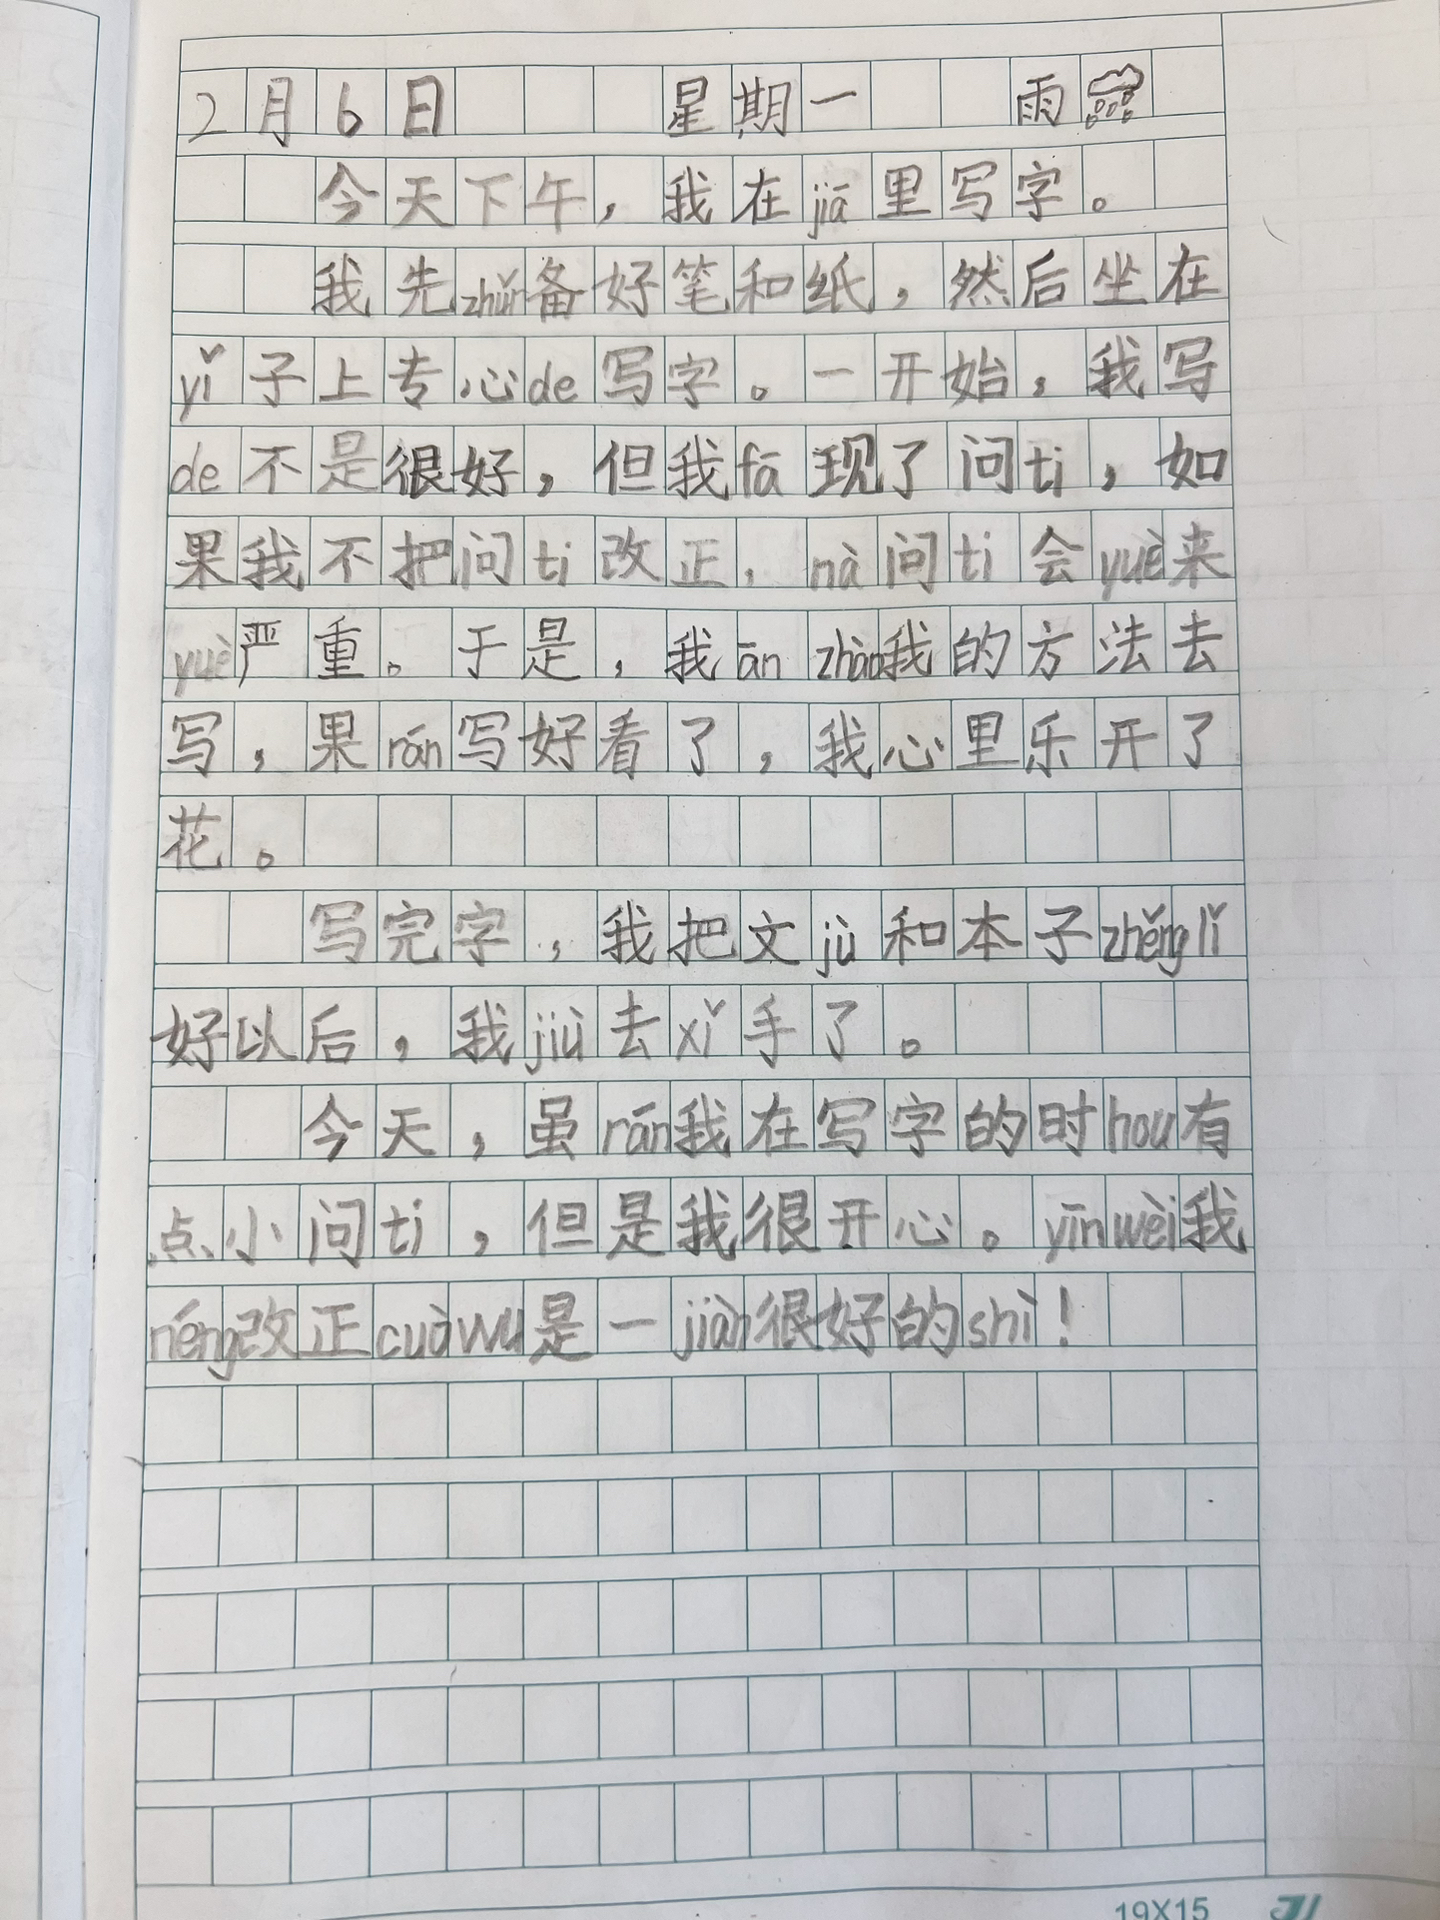 2月6日 星期一 雨
今天下午，我在jiā里写字。
我先zhǔn备好笔和纸，然后坐在
yǐ子上专心de写字。一开始，我写
de不是很好，但我fā现了问tí，如
果我不把问tí改正，nà问tí会yuè来
yuè严重。于是，我àn zhào我的方法去
写，果rán写好看了，我心里乐开了
花。
写完字，我把文jù和本子zhěng lǐ
好以后，我jiù去xǐ手了。
今天，虽rán我在写字的时hou有
点小问tí，但是我很开心。yīn wèi我
néng改正cuò wu是一jiàn很好的shì！
19X15